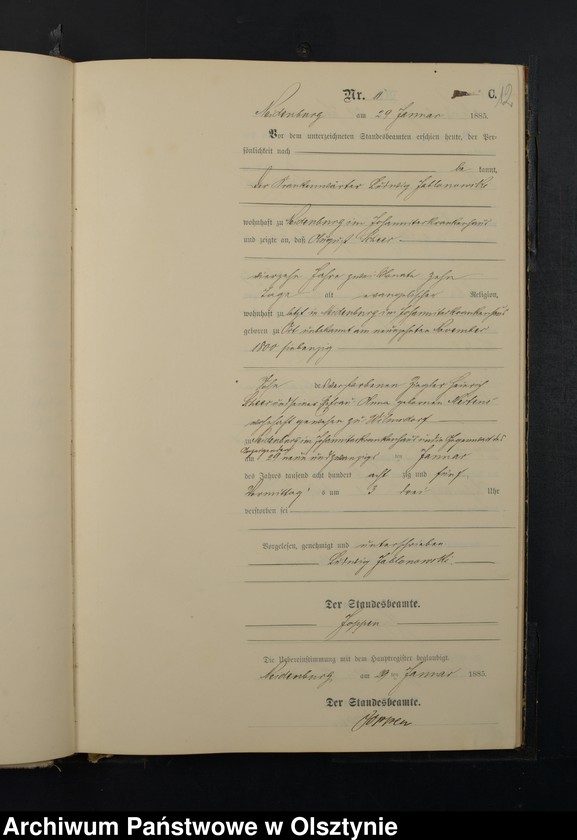 Nr. 11
C.
12
Neidenburg am 29 Januar 1885.
Vor dem unterzeichneten Standesbeamten erschien heute, der Per-
sönlichkeit nach
be kannt,
der Krankenwärter Ludwig Jablonowski
wohnhaft zu Neidenburg im Johanniterkrankenhaus
und zeigte an, daß August Scheer
vierzehn Jahre zwei Monate zehn
Tage alt evangelischer Religion,
wohnhaft zu letzt in Neidenburg im Johanniterkrankenhaus
geboren zu Ort unbekannt am neunzehnten November
1800 siebenzig
Sohn des verstorbenen Ziegler Heinrich
Scheer und seiner Ehefrau Anna geborenen
wohnhaft gewesen zu Wilmsdorf
zu Neidenburg im Johanniterkrankenhaus und in Gegenwart des
Anzeigenden
am 29 neun und zwanzigsten Januar
des Jahres tausend acht hundert acht zig und fünf
Vormittags um 3 drei Uhr
verstorben sei
Vorgelesen, genehmigt und unterschrieben
Ludwig Jablonowski.
Der Standesbeamte.
Joppen
Die Uebereinstimmung mit dem Hauptregister beglaubigt.
Neidenburg am 29 ten Januar 1885.
Der Standesbeamte.
Joppen
Archiwum Państwowe w Olsztynie